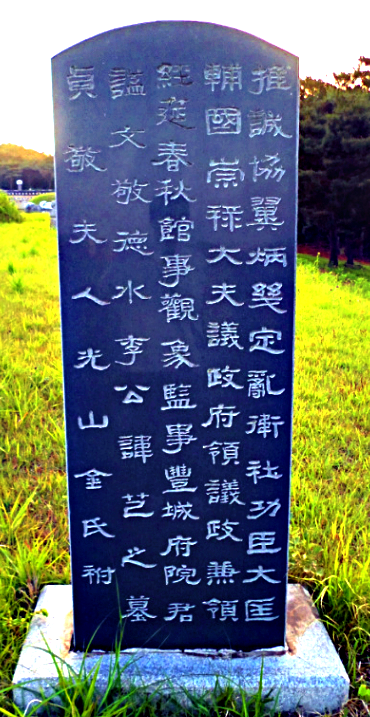 推誠協翼炳幾定亂衛社功臣大匡
輔國崇祿大夫議政府領議政兼領
經筵春秋館事觀象監事豐城府院君
諡文敬德水李公諱芑之墓
貞敬夫人光山金氏祔